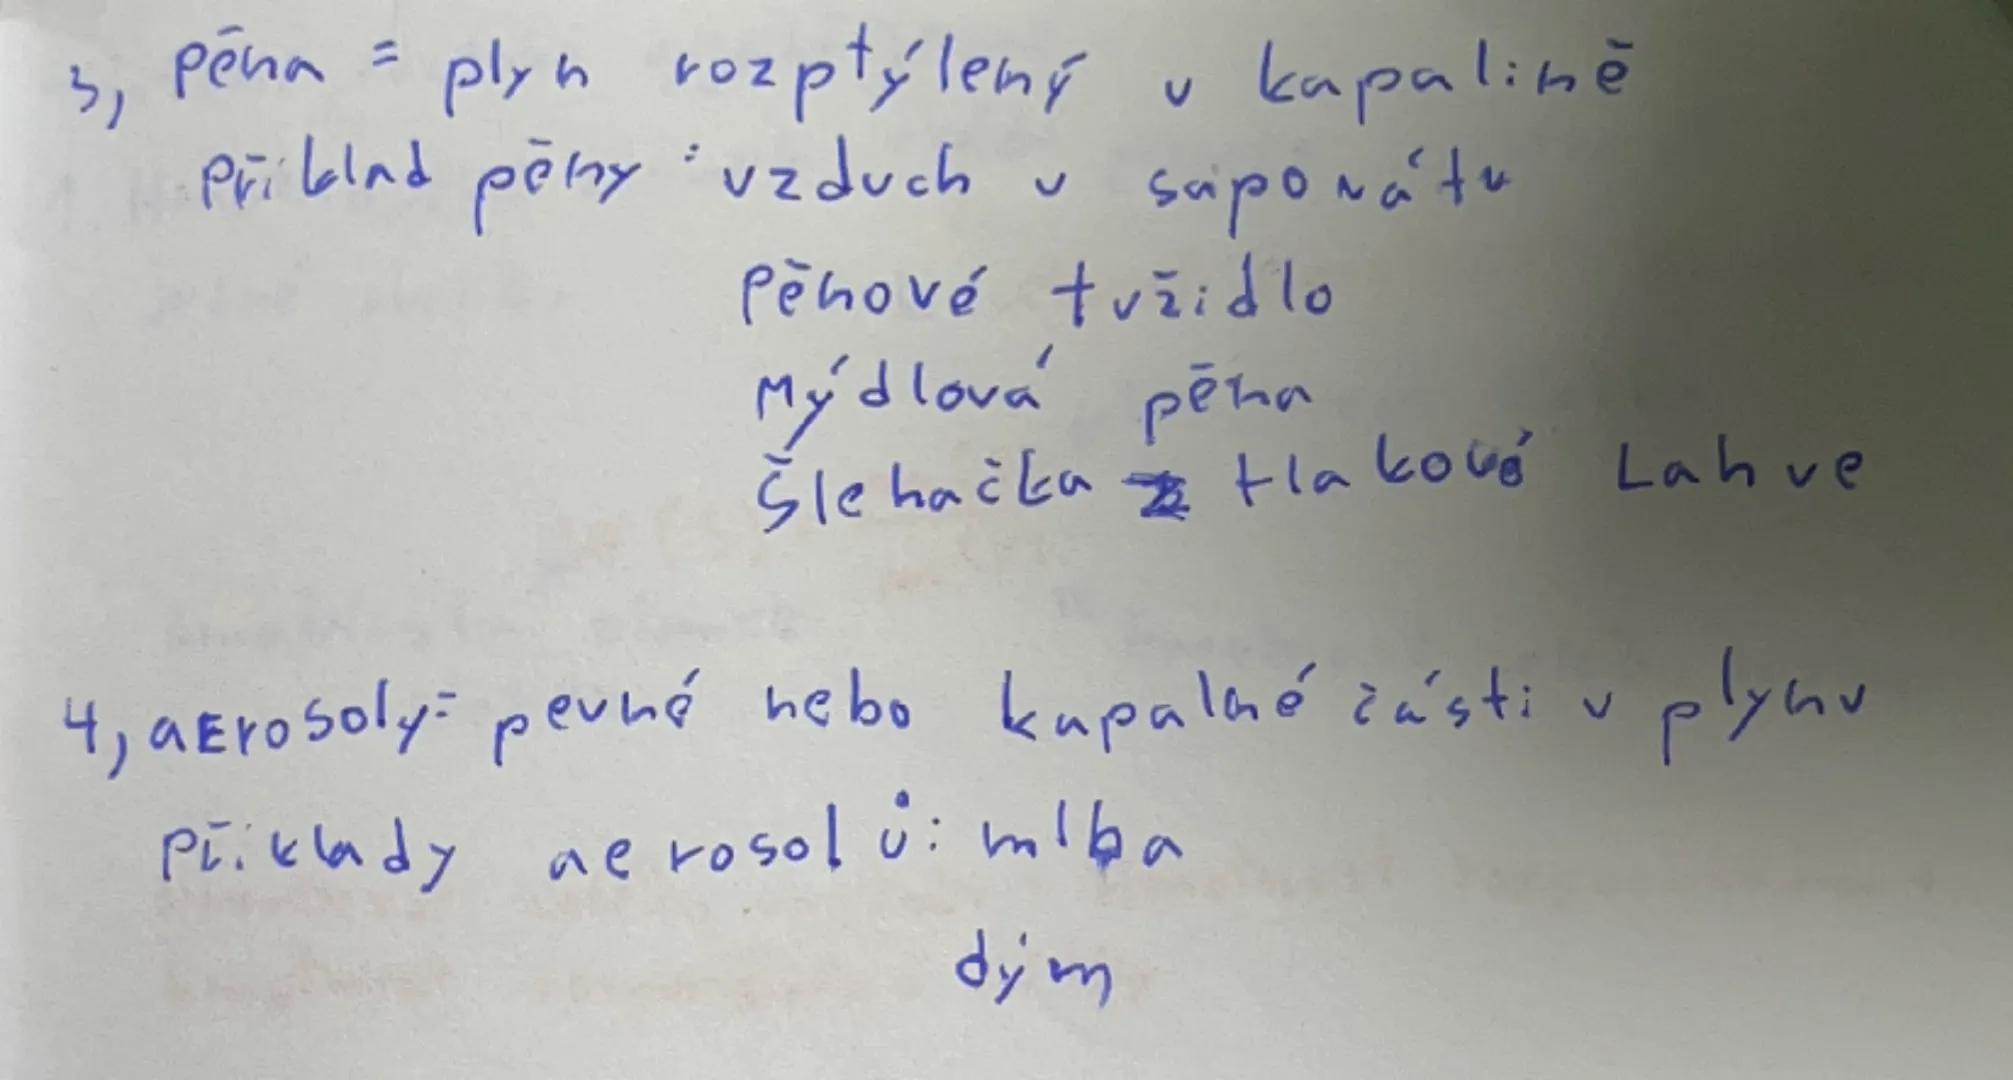 3, pěna = plyn rozptýlený v kapalině
Příklad pěny: vzduch v saponátu
Pěnové tvžidlo
Mýdlová pěna
Šlehačka z tlakové Lahve
4, aErosoly= pevné nebo kapalné části v plynu
Příklady aerosolů: mlba
dým